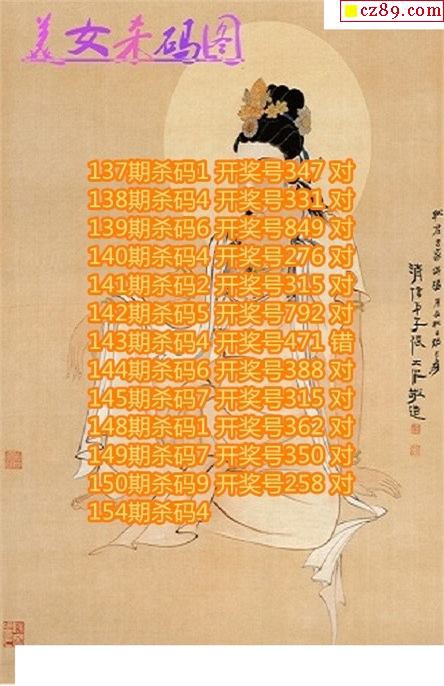 美女杀码图
cz89.com
137期杀码1 开奖号347 对
138期杀码4 开奖号331 对
139期杀码6 开奖号849 对
140期杀码4 开奖号276 对
141期杀码2 开奖号315 对
142期杀码5 开奖号792 对
143期杀码4 开奖号471 错
144期杀码6 开奖号388 对
145期杀码7 开奖号315 对
148期杀码1 开奖号362 对
149期杀码7 开奖号350 对
150期杀码9 开奖号258 对
154期杀码4